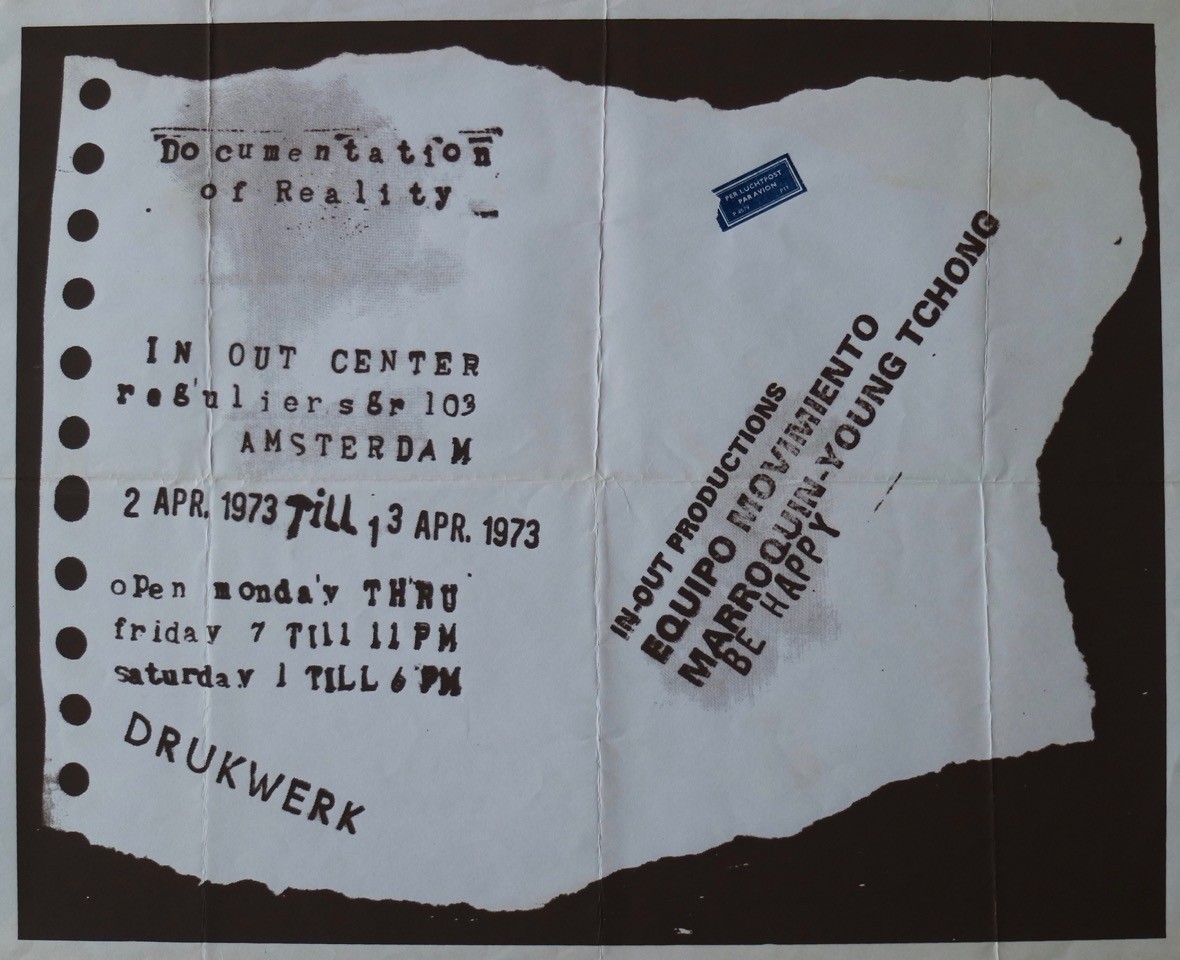 Documentation
of Reality
IN OUT CENTER
reguliersgr 103
AMSTERDAM
2 APR. 1973 TiLL 13 APR. 1973
oPen monday THRU
friday 7 TIll 11 PM
saturday 1 TILL 6 PM
DRUKWERK
PER LUCHTPOST
PAR AVION
IN-OUT PRODUCTIONS
EQUIPO MOVIMIENTO
MARROQUIN-YOUNG TCHONG
BE HAPPY